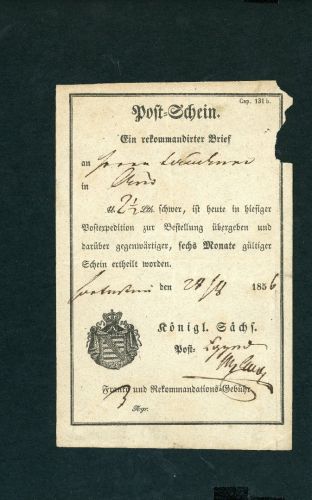 Cap. 131 b.
Post-Schein.
Ein rekommandirter Brief
an Herrn
in
2½ Lth. schwer, ist heute in hiesiger
Postexpedition zur Bestellung übergeben und
darüber gegenwärtiger, sechs Monate gültiger
Schein ertheilt worden.
den 24/8 1856
Königl. Sächs.
Post-
Franko und Rekommandations-Gebühr
3
Ngr.